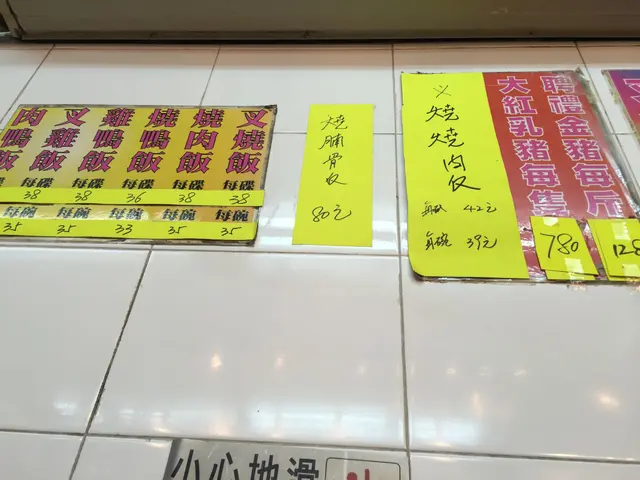 叉燒飯
燒肉飯
燒鴨飯
雞鴨飯
叉雞飯
肉鴨飯
每碟 每碟 每碟 每碟 每碟
38 38 36 38 38
每碗 每碗 每碗 每碗
35 35 33 35 35
燒腩骨反
80元
乂燒燒肉反
42元
每碗 39元
聘禮金豬每斤
大紅乳豬每隻
780
128
小心地滑